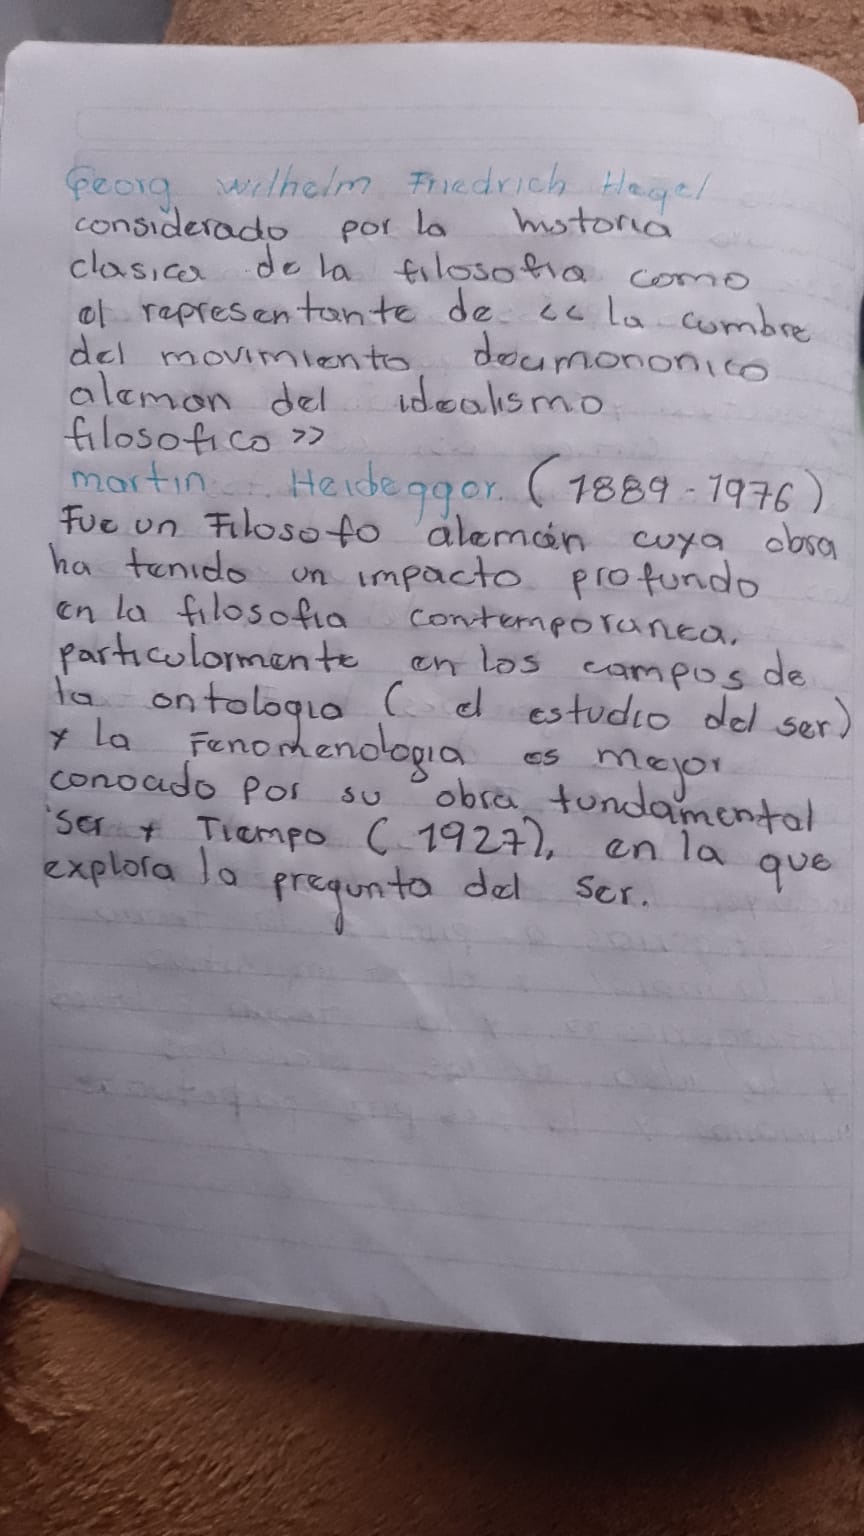 Georg Wilhelm Friedrich Hegel
considerado por la historia
clasica de la filosofia como
el representante de << la cumbre
del movimiento decimononico
aleman del idealismo
filosofico >>
martin Heidegger. (1889-1976)
Fue un Filosofo alemán cuya obra
ha tenido un impacto profundo
en la filosofia contemporanea.
particularmente en los campos de
la ontologia ( el estudio del ser)
y la Fenomenologia es mejor
conocido por su obra fundamental
'Ser y Tiempo ( 1927), en la que
explora la pregunta del ser.